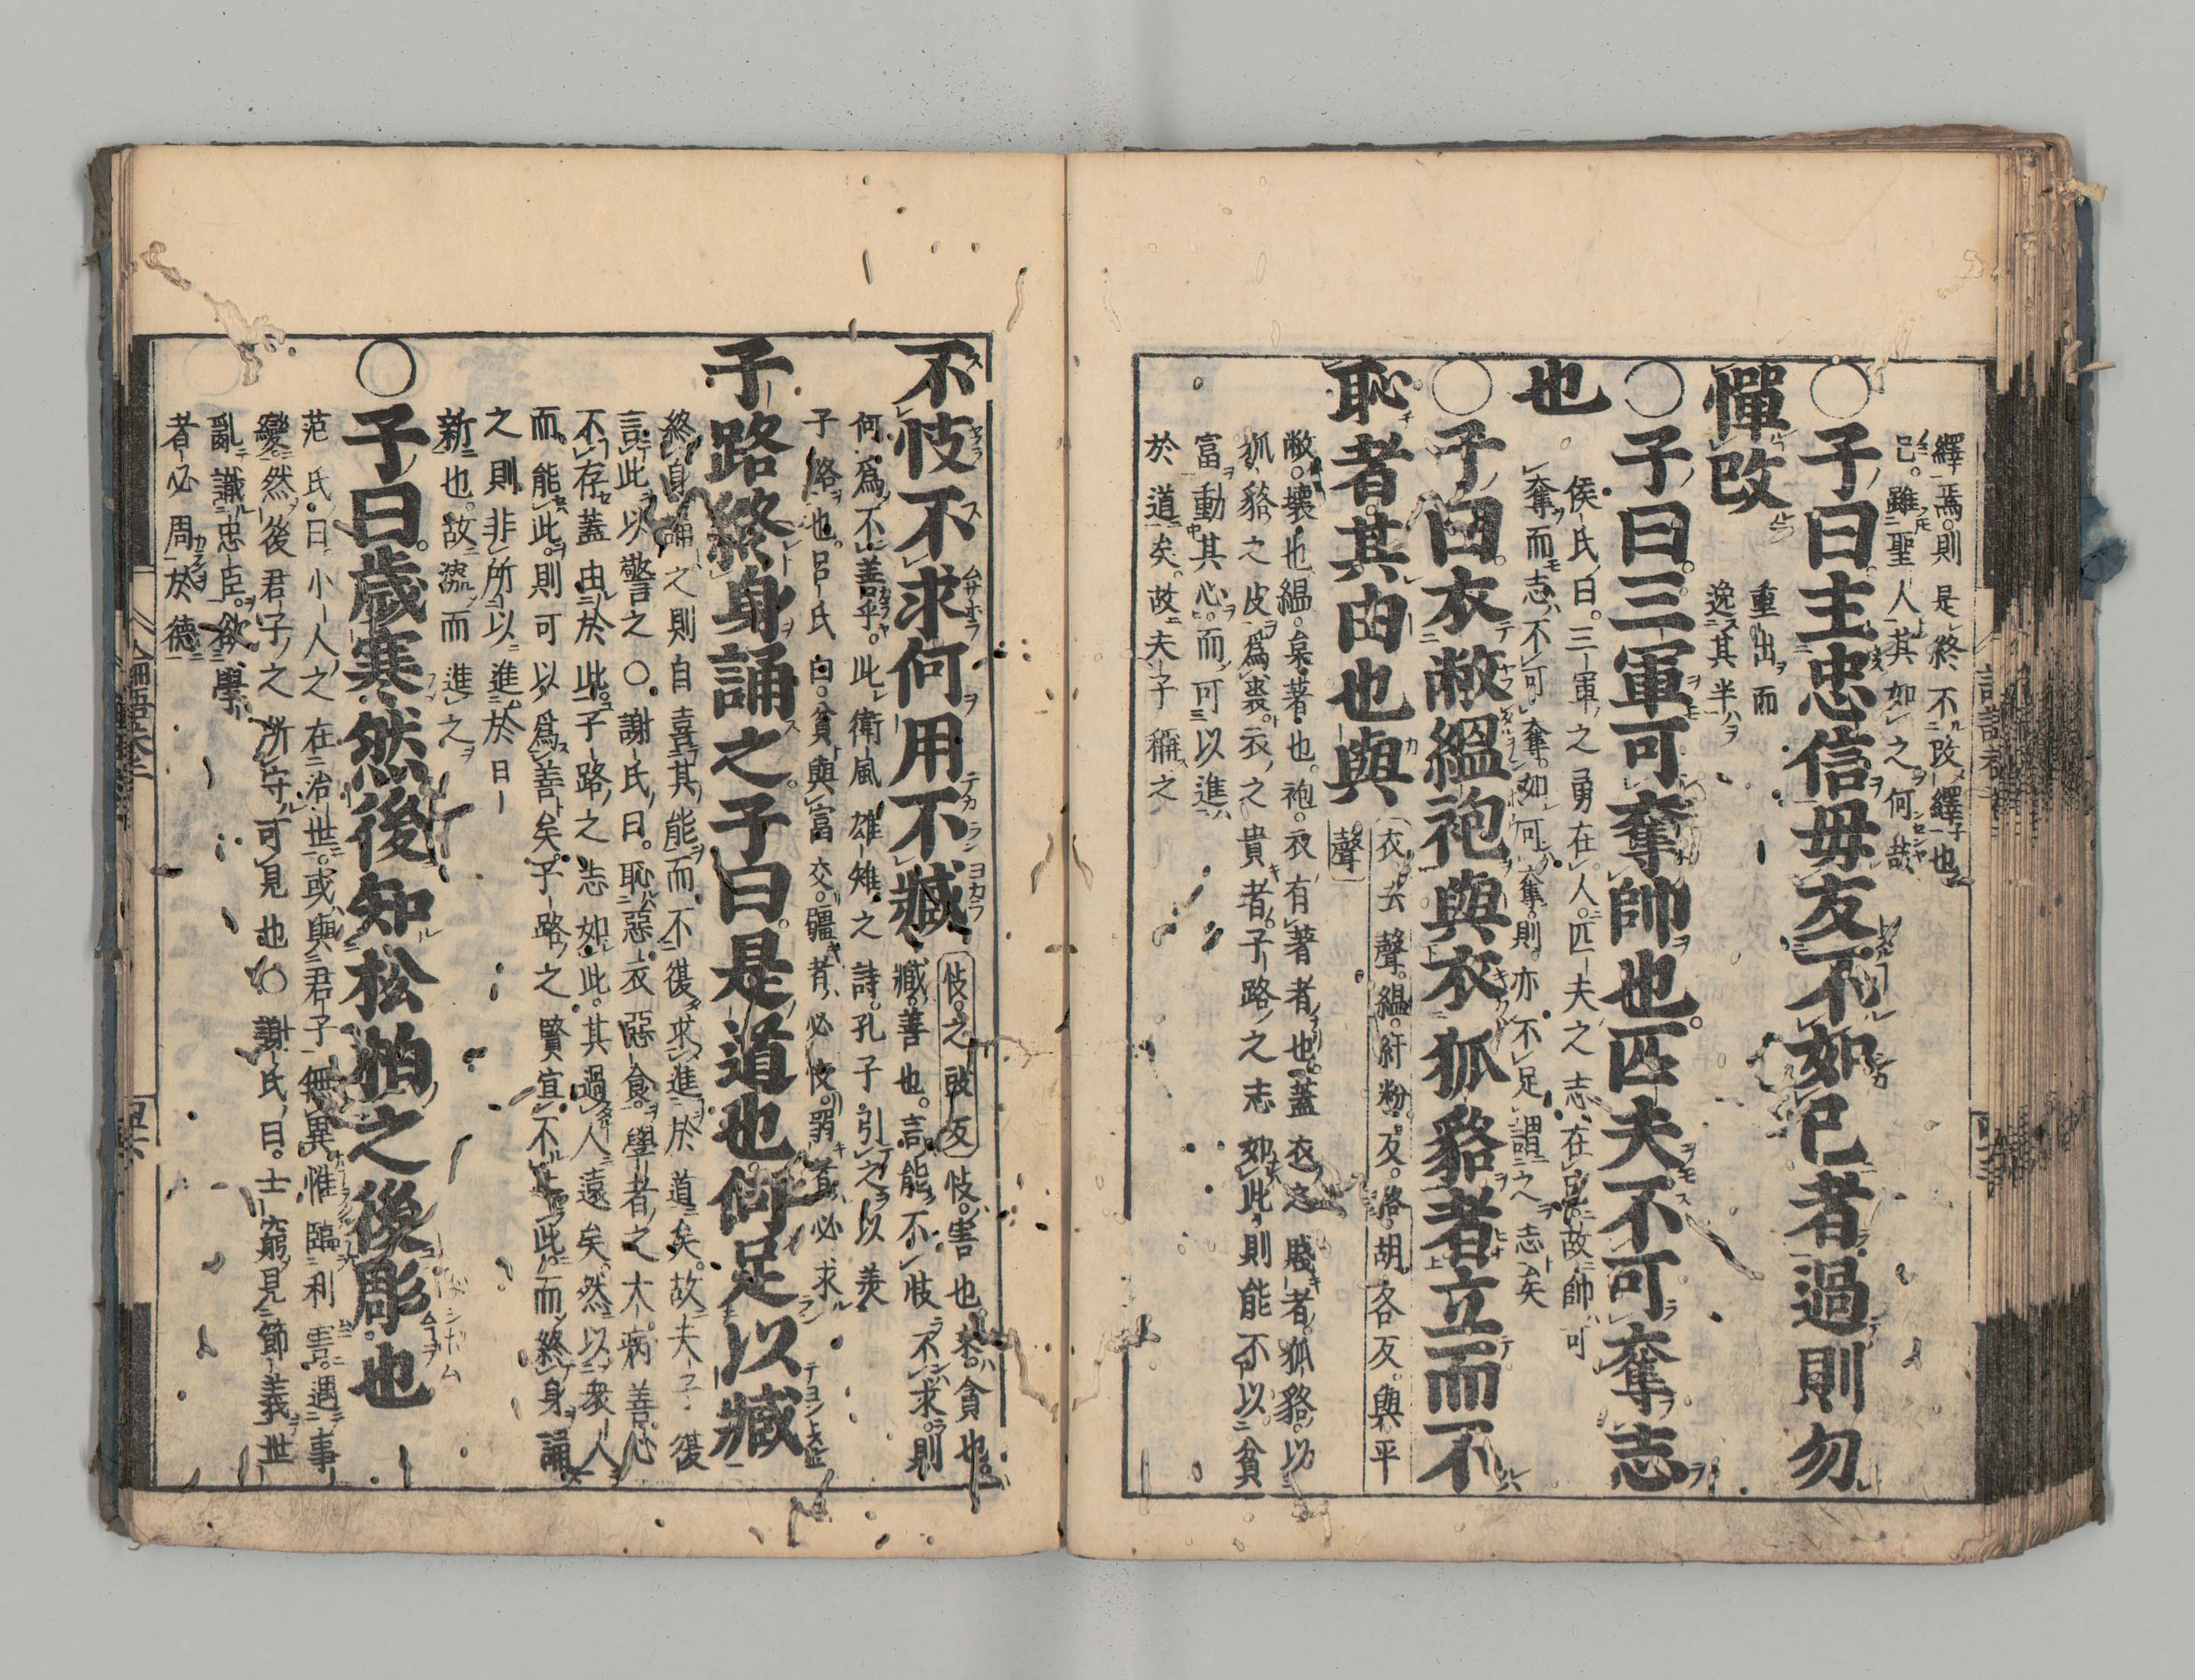 繹焉則是終不改繹也
已雖聖人其如之何哉
○子曰主忠信毋友不如已者過則勿
憚改
重出而
逸其半
○子曰三軍可奪帥也匹夫不可奪志
也
侯氏曰三軍之勇在人匹夫之志在已故帥可
奪而志不可奪如可奪則亦不足謂之志矣
○子曰衣敝縕袍與衣狐貉者立而不
恥者其由也與
衣去聲縕紆粉反貉胡各反與平
聲
敝壞也縕枲著也袍衣有著者也蓋衣之賤者狐貉以
狐貉之皮爲裘衣之貴者子路之志如此則能不以貧
富動其心而可以進
於道矣故夫子稱之
不忮不求何用不臧
忮之豉反
忮害也求貪也
臧善也言能不忮不求則
何爲不善乎此衛風雄雉之詩孔子引之以美
子路也呂氏曰貧與富交彊者必忮弱者必求
子路終身誦之子曰是道也何足以臧
終身誦之則自喜其能而不復求進於道矣故夫子復
言此以警之○謝氏曰恥惡衣惡食學者之大病善心
不存蓋由於此子路之志如此其過人遠矣然以衆人
而能此則可以爲善矣子路之賢宜不止此而終身誦
之則非所以進於日
新也故激而進之
○子曰歳寒然後知松栢之後彫也
范氏曰小人之在治世或與君子無異惟臨利害遇事
變然後君子之所守可見也○謝氏曰士窮見節義世
亂識忠臣欲學
者必周於德